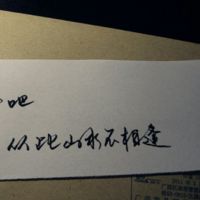 吧
从此山水不相逢